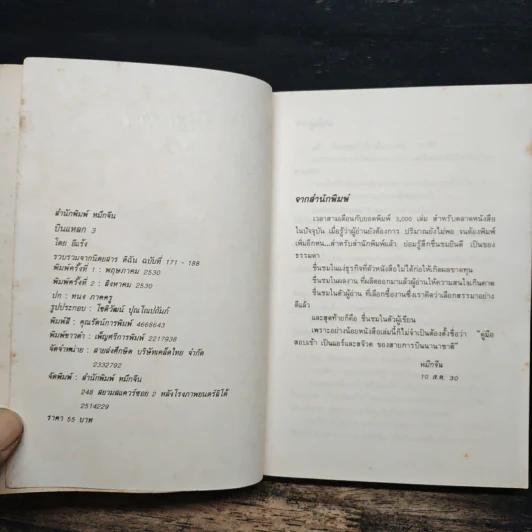 สำนักพิมพ์ หมึกจีน
บินแหลก 3
โดย อีแร้ง
รวบรวมจากนิตยสาร ดิฉัน ฉบับที่ 171 - 188
พิมพ์ครั้งที่ 1 : พฤษภาคม 2530
พิมพ์ครั้งที่ 2 : สิงหาคม 2530
ปก : ทนง ภาคครู
รูปประกอบ : โชติวัฒน์ ปุณโณปถัมภ์
พิมพ์สี : คุณรัตน์การพิมพ์ 4668643
พิมพ์ขาวดำ : เพ็ญศรีการพิมพ์ 2217938
จัดจำหน่าย : สายส่งศึกษิต บริษัทเคล็ดไทย จำกัด
2332792
จัดพิมพ์ : สำนักพิมพ์ หมึกจีน
248 สยามสแควร์ซอย 2 หลังโรงภาพยนตร์ลิโด้
2514229
ราคา 55 บาท
จากสำนักพิมพ์
เวลาสามเดือนกับยอดพิมพ์ 3,000 เล่ม สำหรับตลาดหนังสือ
ในปัจจุบัน เมื่อรู้ว่าผู้อ่านยังต้องการ ปริมาณยังไม่พอ จนต้องพิมพ์
เพิ่มอีกหน...สำหรับสำนักพิมพ์แล้ว ย่อมรู้สึกชื่นชมยินดี เป็นของ
ธรรมดา
ชื่นชมในแง่ธุรกิจที่ตัวหนังสือไม่ได้ก่อให้เกิดผลขาดทุน
ชื่นชมในผลงาน ที่ผลิตออกมาแล้วผู้อ่าน ให้ความสนใจเกินคาด
ชื่นชมในตัวผู้อ่าน ที่เลือกซื้องานซึ่งเราคิดว่าเลือกสรรมาอย่าง
ดีแล้ว
และสุดท้ายก็คือ ชื่นชมในตัวผู้เขียน
เพราะอย่างน้อยหนังสือเล่มนี้ก็ไม่จำเป็นต้องตั้งชื่อว่า "คู่มือ
สอบเข้า เป็นแอร์และสจ๊วต ของสายการบินนานาชาติ"
หมึกจีน
10 ส.ค. 30